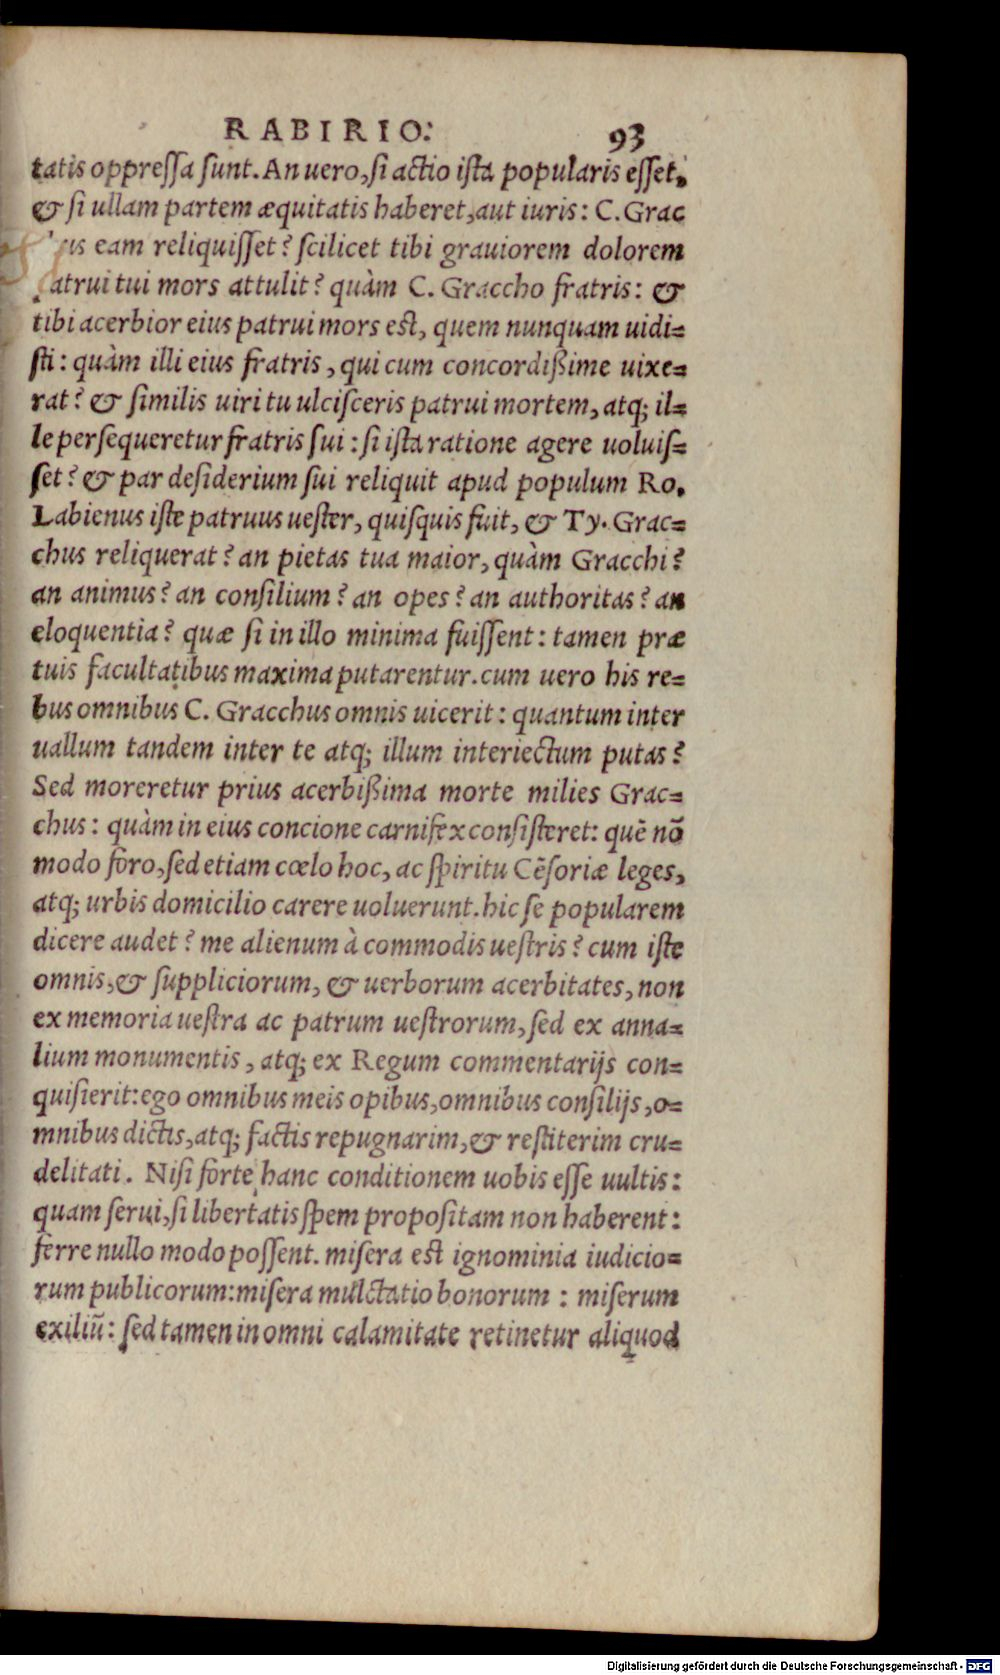 RABIRIO. 93
tatis oppreſſa ſunt. An uero, ſi actio iſta popularis eſſet,
& ſi ullam partem æquitatis haberet, aut iuris: C. Grac
eam reliquiſſet? ſcilicet tibi grauiorem dolorem
patrui tui mors attulit? quàm C. Graccho fratris: &
tibi acerbior eius patrui mors est, quem nunquam uidi=
ſti: quàm illi eius fratris, qui cum concordißime uixe=
rat? & ſimilis uiri tu ulciſceris patrui mortem, atq; il=
le perſequeretur fratris ſui: ſi iſta ratione agere uoluiſ=
ſet? & par deſiderium ſui reliquit apud populum Ro.
Labienus iſte patruus ueſter, quiſquis fuit, & Ty. Grac=
chus reliquerat? an pietas tua maior, quàm Gracchi?
an animus? an conſilium? an opes? an authoritas? an
eloquentia? quæ ſi in illo minima fuiſſent: tamen præ
tuis facultatibus maxima putarentur. cum uero his re=
bus omnibus C. Gracchus omnis uicerit: quantum inter
uallum tandem inter te atq; illum interiectum putas?
Sed moreretur prius acerbißima morte milies Grac=
chus: quàm in eius concione carnifex conſiſteret: quē nō
modo foro, ſed etiam cœlo hoc, ac ſpiritu Cēſoriæ leges,
atq; urbis domicilio carere uoluerunt. hic ſe popularem
dicere audet? me alienum à commodis ueſtris? cum iſte
omnis, & ſuppliciorum, & uerborum acerbitates, non
ex memoria ueſtra ac patrum ueſtrorum, ſed ex anna=
lium monumentis, atq; ex Regum commentarijs con=
quiſierit: ego omnibus meis opibus, omnibus conſilijs, o=
mnibus dictis, atq; factis repugnarim, & reſtiterim cru=
delitati. Niſi forte hanc conditionem uobis eſſe uultis:
quam ſerui, ſi libertatis ſpem propoſitam non haberent:
ferre nullo modo poſſent. miſera est ignominia iudicio=
rum publicorum: miſera mulctatio bonorum: miſerum
exiliū: ſed tamen in omni calamitate retinetur aliquod
Digitalisierung gefördert durch die Deutsche Forschungsgemeinschaft - DFG